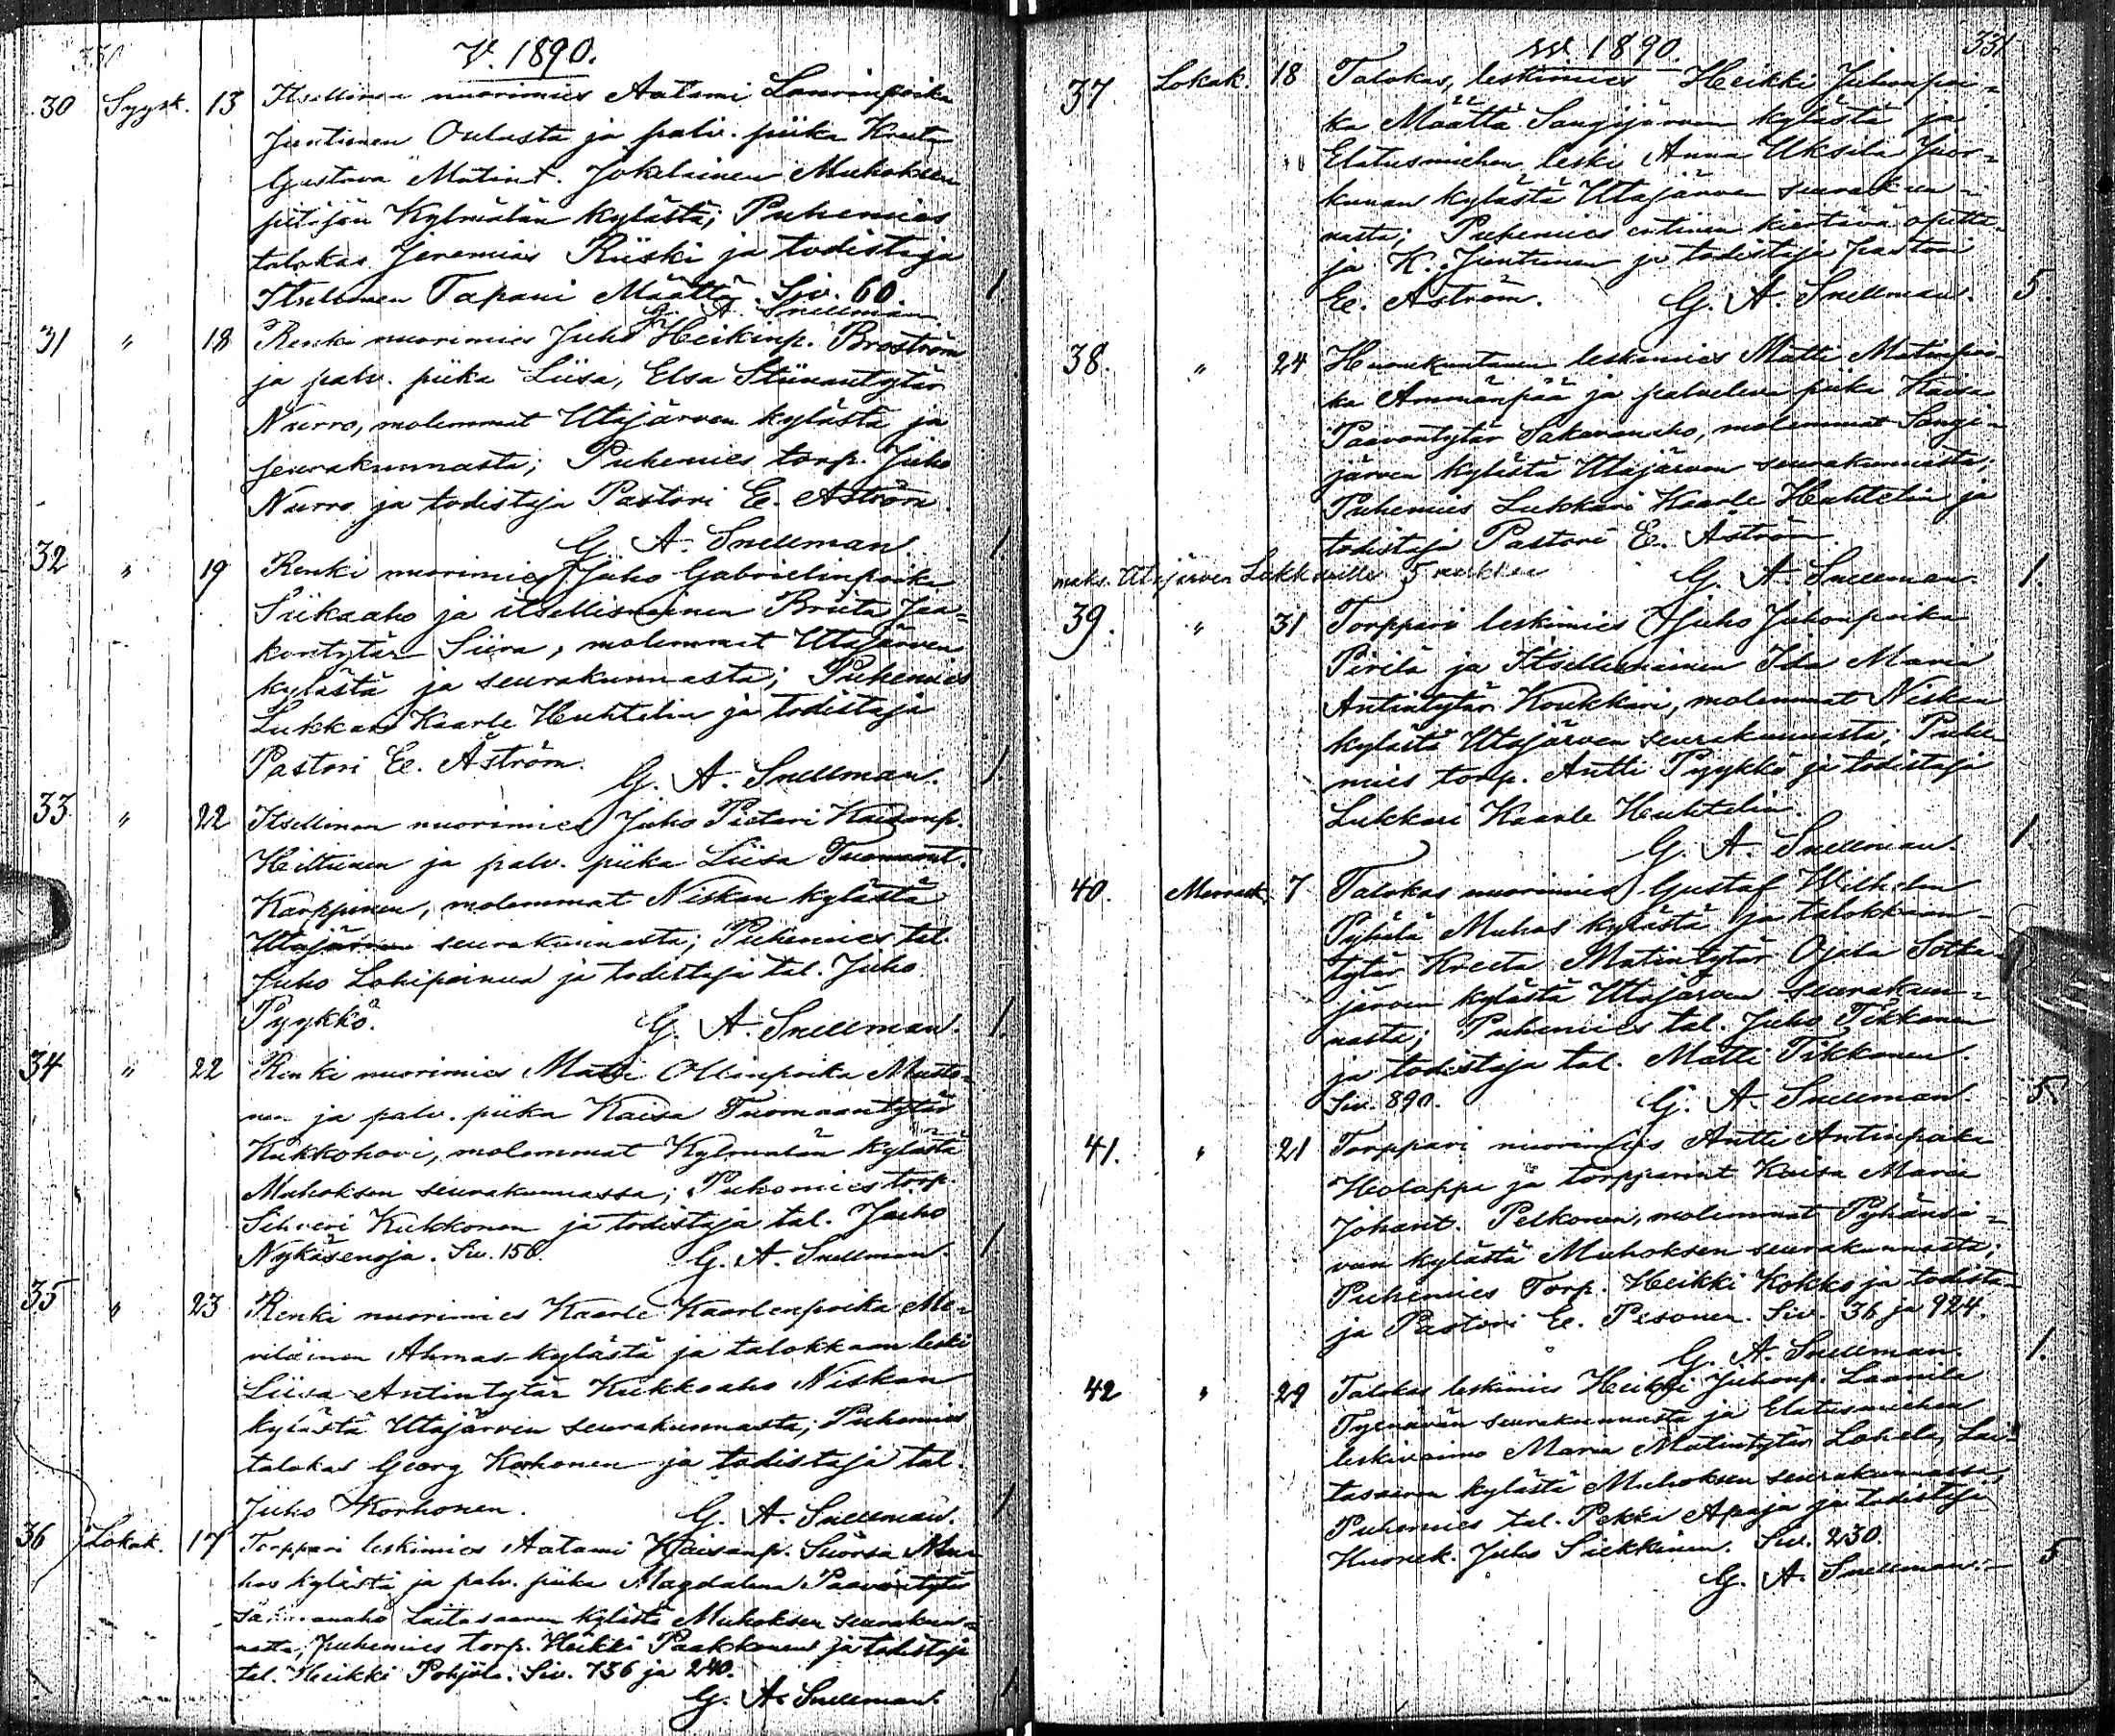 330
V. 1890.
30 Syysk. 13 Itsellinen nuorimies Aatami Laurinpoika
Juntunen Oulusta ja palv. piika Kreeta
Gustava Matint. Jokelainen Muhoksen
pitäjän Kylmälän kylästä; Puhemies
talokas Jeremias Riiski ja todistaja
Itsellinen Tapani Määttä. Siv. 60. 1
G. A. Snellman.
31 " 18 Renki nuorimies Juho Heikinp. Broström
ja palv. piika Liisa, Elsa Stiinantytär
Nurro, molemmat Utajärven kylästä ja
seurakunnasta; Puhemies torp. Juho
Nurro ja todistaja Pastori E. Åström.
G. A. Snellman. 1
32 " 19 Renki nuorimies Juho Gabrielinpoika
Siikaaho ja itsellisnainen Briita Jaa-
kontytär Siira, molemmat Utajärven
kylästä ja seurakunnasta; Puhemies
Lukkari Kaarle Huhtelin ja todistaja
Pastori E. Åström.
G. A. Snellman. 1.
33 " 22 Itsellinen nuorimies Juho Pietari Kaisanp.
Heiltunen ja palv. piika Liisa Tuomaant.
Karppinen, molemmat Niskan kylästä
Utajärven seurakunnasta; Puhemies tal.
Juho Lohipainua ja todistaja tal. Juho
Pyykkö. G. A. Snellman. 1.
34 " 22 Renki nuorimies Matti Ollinpoika Musto-
nen ja palv. piika Kaisa Tuomaantytär
Kukkohovi, molemmat Kylmälän kylästä
Muhoksen seurakunnassa; Puhemies torp.
Sihveri Kukkonen ja todistaja tal. Juho
Nykäsenoja. Siv. 156. G. A. Snellman. 1
35 " 23 Renki nuorimies Kaarle Kaarlenpoika Me-
riläinen Ahmas-kylästä ja talokkaan leski
Liisa Antintytär Kukkoaho Niskan
kylästä Utajärven seurakunnasta; Puhemies
talokas Georg Korhonen ja todistaja tal.
Juho Korhonen. G. A. Snellman. 1
36 Lokak. 17 Torppari leskimies Aatami Kaisanp. Suorsa Mu-
hos kylästä ja palv. piika Magdalena Paavontytär
Laitasaaren kylästä Muhoksen seurakun-
nasta; Puhemies torp. Heikki Paakkonen ja todistaja
tal. Heikki Pohjola. Siv. 736 ja 240.
G. A. Snellman. 1
331
vv. 1890.
37 Lokak. 18 Talokas, leskimies Heikki Juhonpoi-
ka Määttä Sangijärven kylästä ja
Elatusmiehen leski Anna Uksila Juor-
kunan kylästä Utajärven seurakun-
nasta; Puhemies entinen kiertävä opetta-
ja K. Juntunen ja todistaja pastori
E. Åström. G. A. Snellman. 5
38. " 24 Huonekuntainen leskimies Matti Matinpoi-
ka Ämmänpää ja palveleva piika Kaisa
Paavontytär Sakaranaho, molemmat Sangi-
järven kylästä Utajärven seurakunnasta;
Puhemies Lukkari Kaarle Huhtelin ja
todistaja Pastori E. Åström.
maks. Utajärven Lukkarille 5 markkaa G. A. Snellman. 1.
39. " 31 Torppari leskimies Juho Juhonpoika
Pirilä ja Itsellisnainen Ida Maria
Antintytär Koukkari, molemmat Niskan
kylästä Utajärven seurakunnasta; Puhe-
mies torp. Antti Pyykkö ja todistaja
Lukkari Kaarle Huhtelin.
G. A. Snellman. 1.
40. Marrask. 7 Talokas nuorimies Gustaf Wilhelm
Pyhälä Muhos kylästä ja talokkaan-
tytär Kreeta Matintytär Ojala Sotka-
järven kylästä Utajärven seurakun-
nasta; Puhemies tal. Juho Tikkanen
ja todistaja tal. Matti Tikkanen.
Siv. 890. G. A. Snellman. 5.
41. " 21 Torppari nuorimies Antti Antinpoika
Holappa ja torpparint Kaisa Maria
Johant. Pelkonen, molemmat Pyhänsi-
vun kylästä Muhoksen seurakunnasta;
Puhemies Torp. Heikki Kokko ja todista-
ja Pastori E. Pesonen. Siv. 36 ja 924.
G. A. Snellman. 1.
42 " 29 Talokas leskimies Heikki Juhonp. Laurila
Tyrnävän seurakunnasta ja Elatusmiehen
leskivaimo Maria Matintytär Lohela, Lai-
tasaaren kylästä Muhoksen seurakunnassa,
Puhemies tal. Pekka Apaja ja todistaja
Huonek. Juho Siekkinen. Siv. 230.
G. A. Snellman. 5